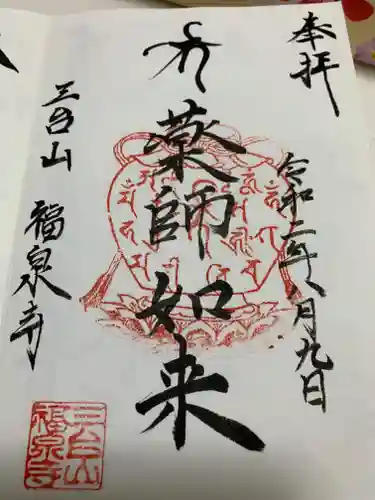 奉拝
令和二年八月九日
薬師如来
三台山 福泉寺
三台山
福泉寺